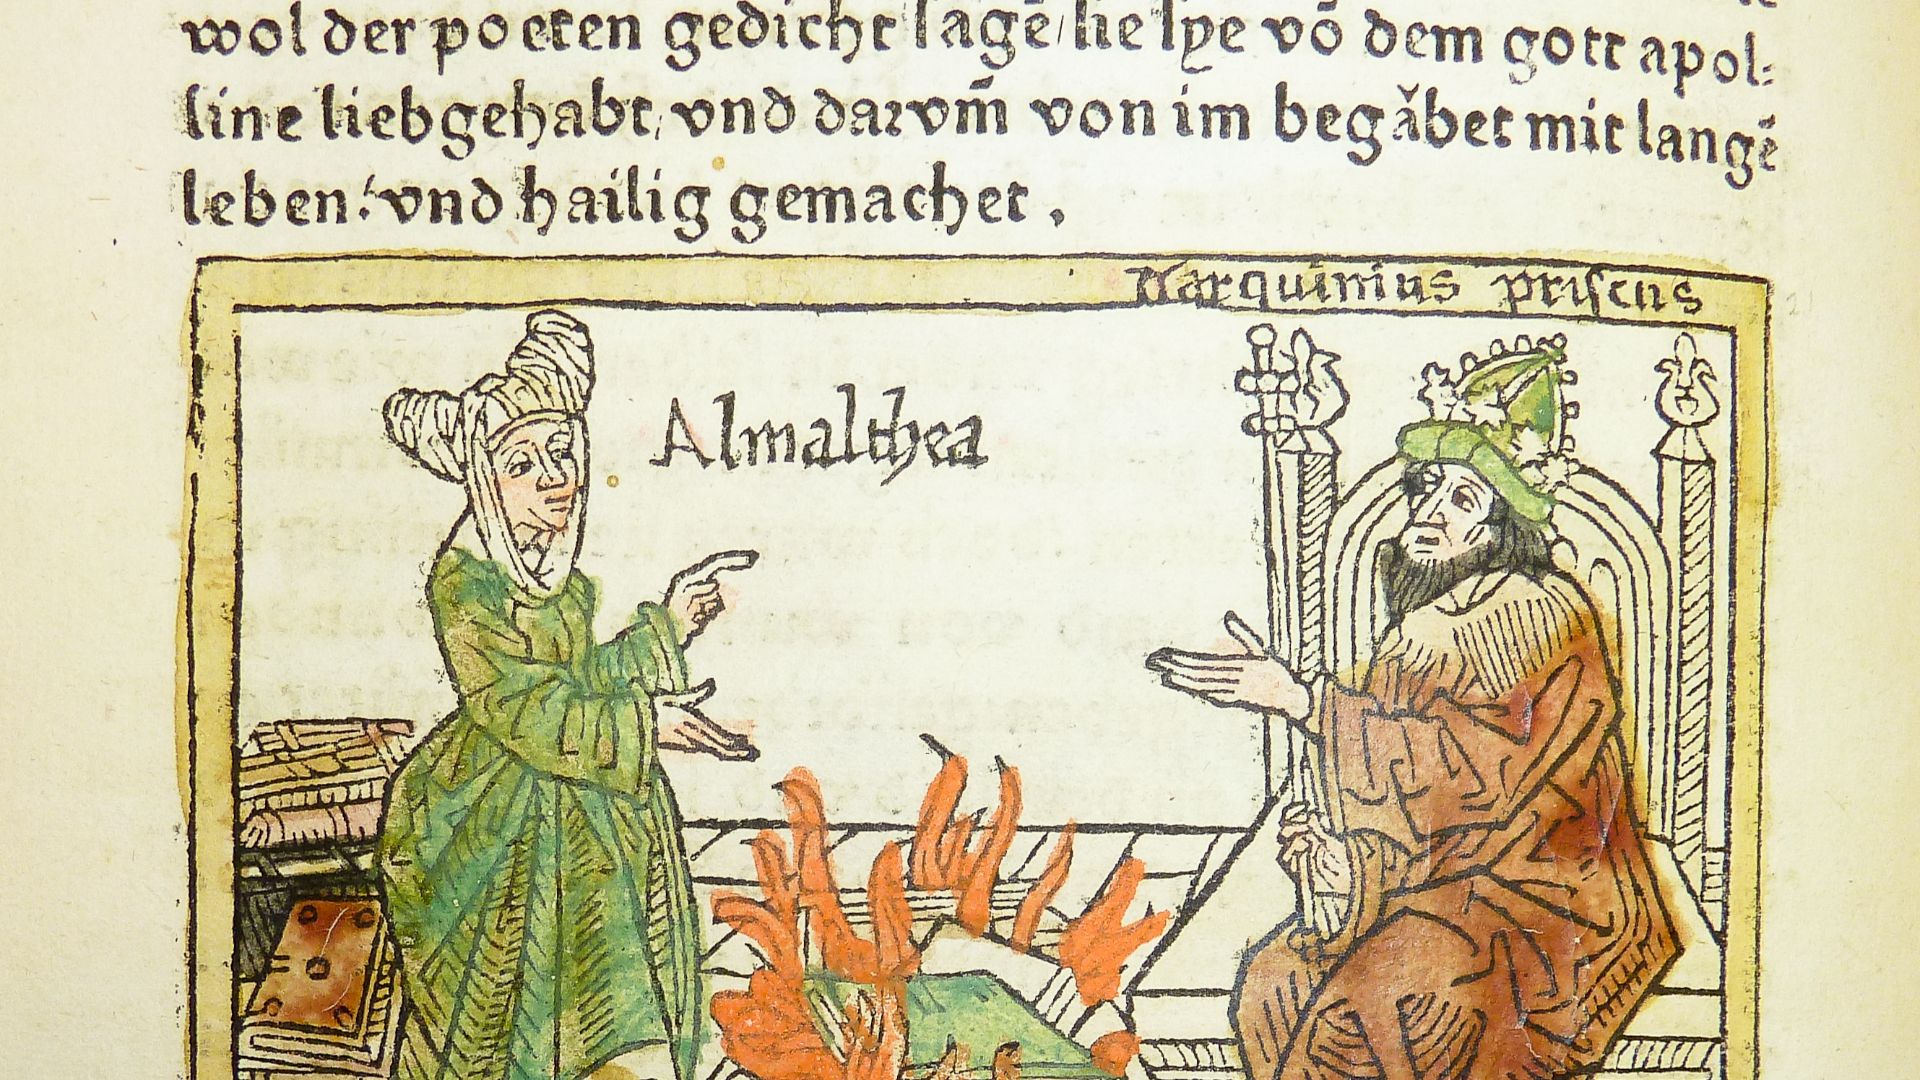 wol der poeten gedicht sagē/ sie sye vō dem gott apol⸗
line liebgehabt, vnd darvm̄ von im begǎbet mit langē
leben: vnd hailig gemachet.
Tarquinius priscus
Almalthea